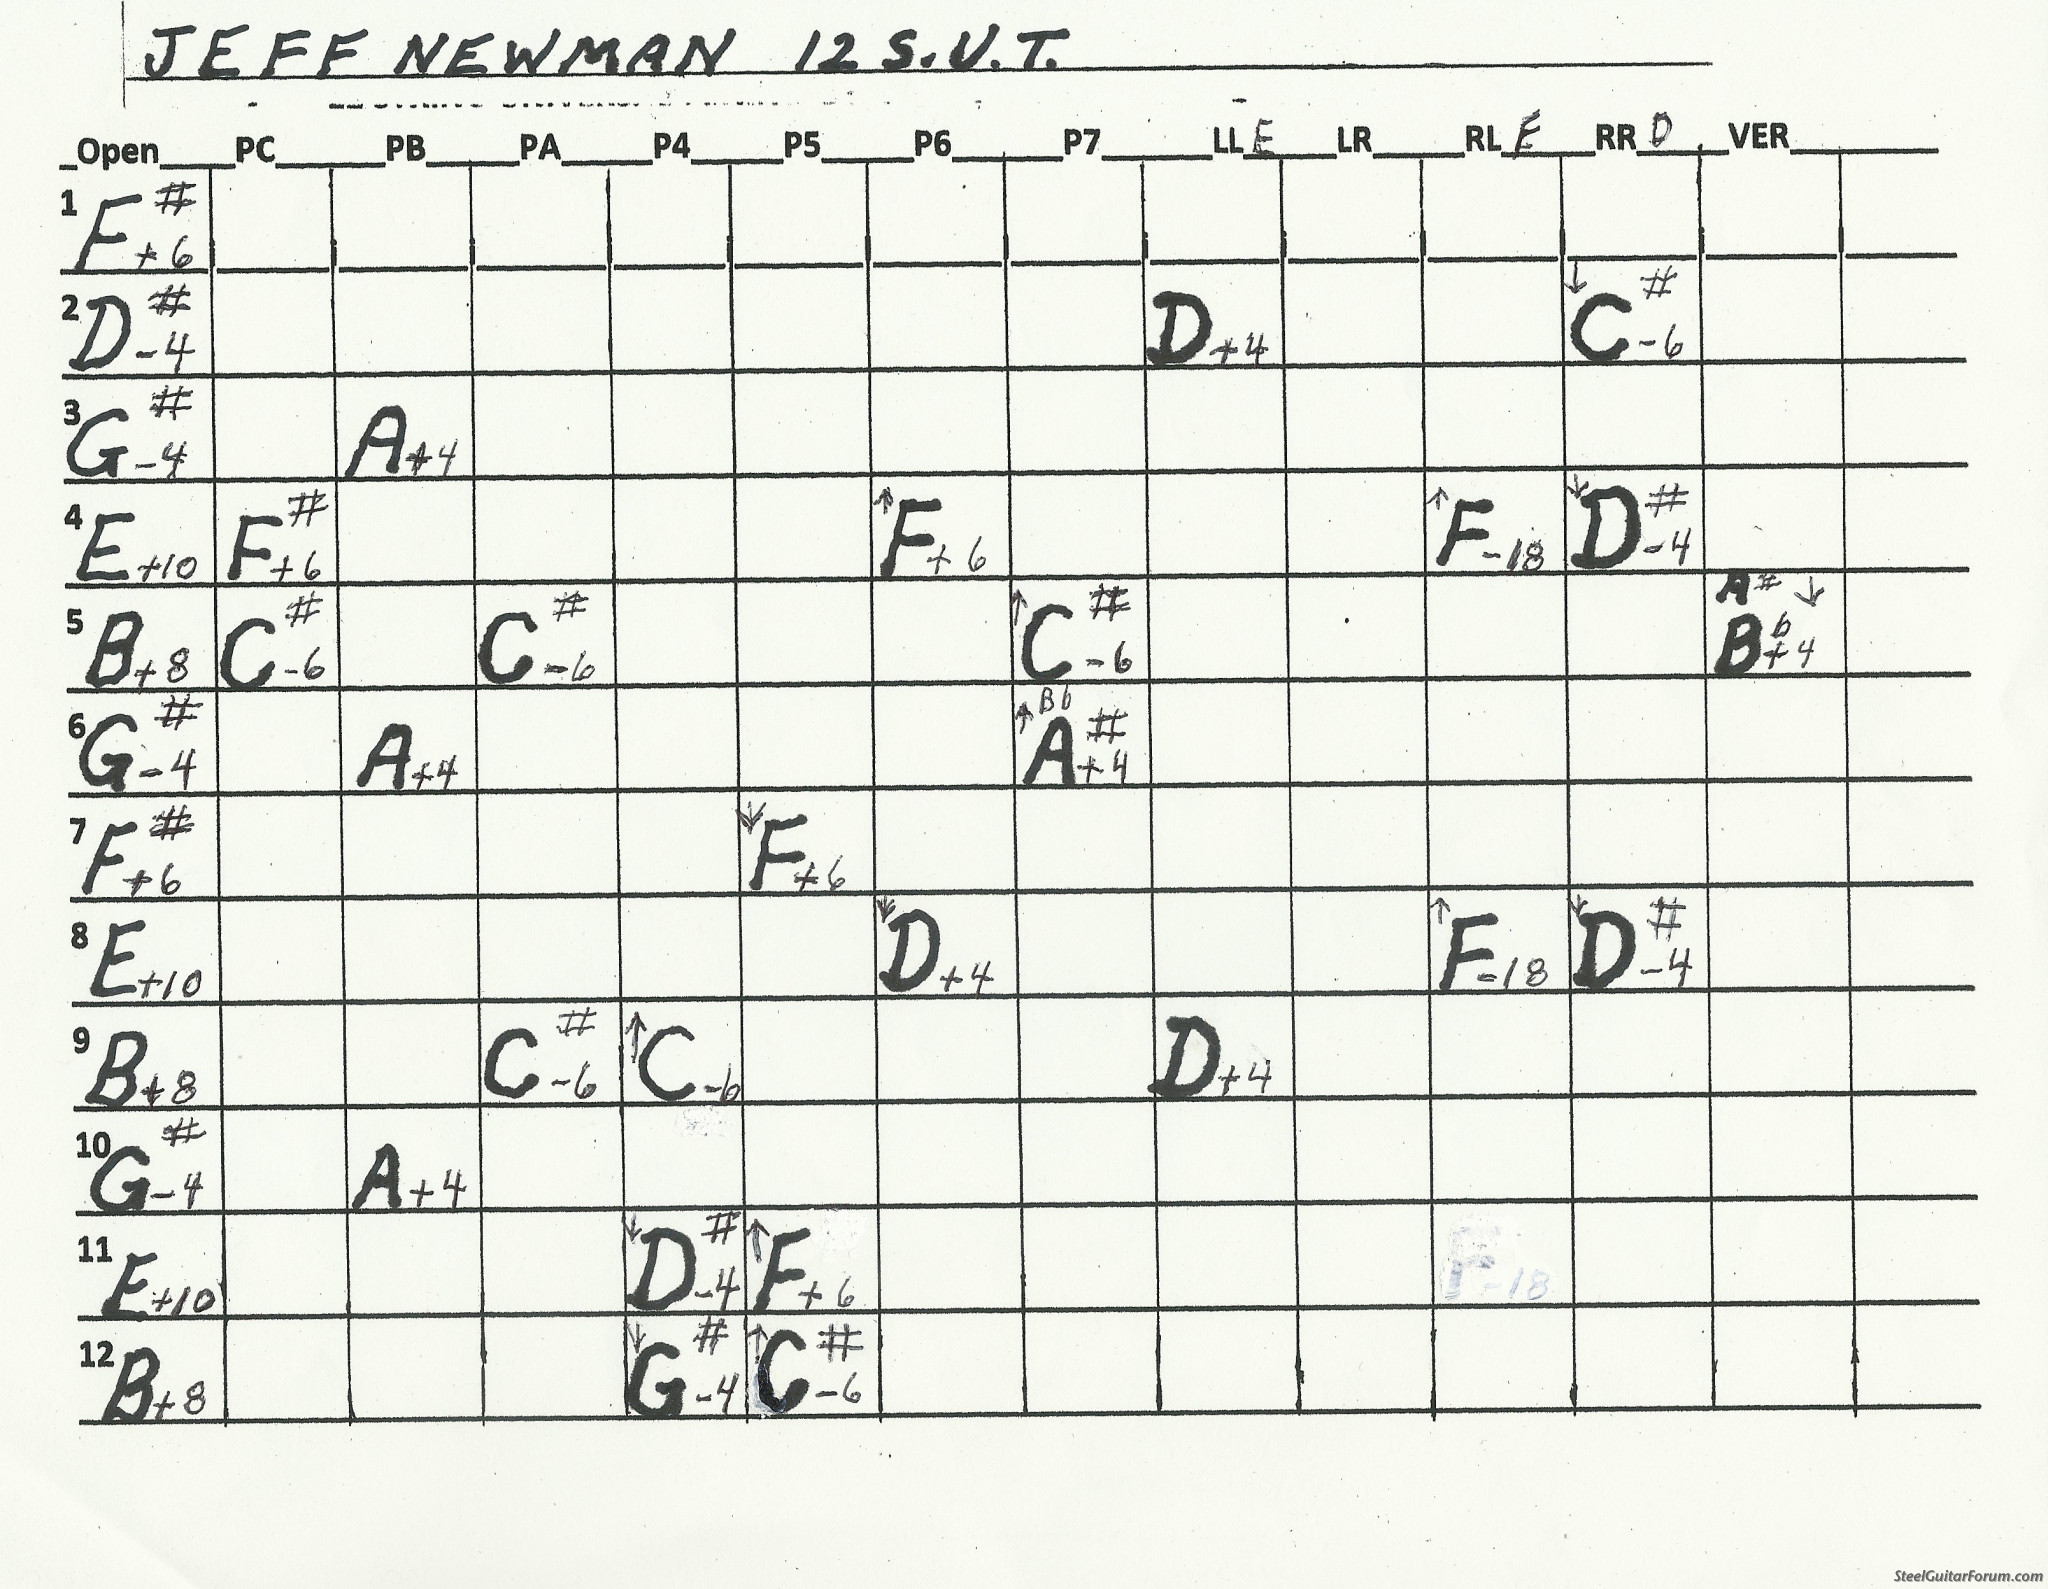 JEFF NEWMAN 12 S.U.T.
Open PC PB PA P4 P5 P6 P7 LL E LR RL F RR D VER
1 F# +6
2 D# -4 D +4 ↓ C# -6
3 G# -4 A +4
4 E +10 F# +6 ↑ F +6 ↑ F -18 ↓ D# -4
5 B +8 C# -6 C# -6 ↑ C# -6 A# ↓ Bb +4
6 G# -4 A +4 ↑ Bb A# +4
7 F# +6 ↓ F +6
8 E +10 ↓ D +4 ↑ F -18 ↓ D# -4
9 B +8 C# -6 ↑ C -6 D +4
10 G# -4 A +4
11 E +10 ↓ D# -4 ↑ F +6 F -18
12 B +8 ↓ G# -4 ↑ C# -6
SteelGuitarForum.com